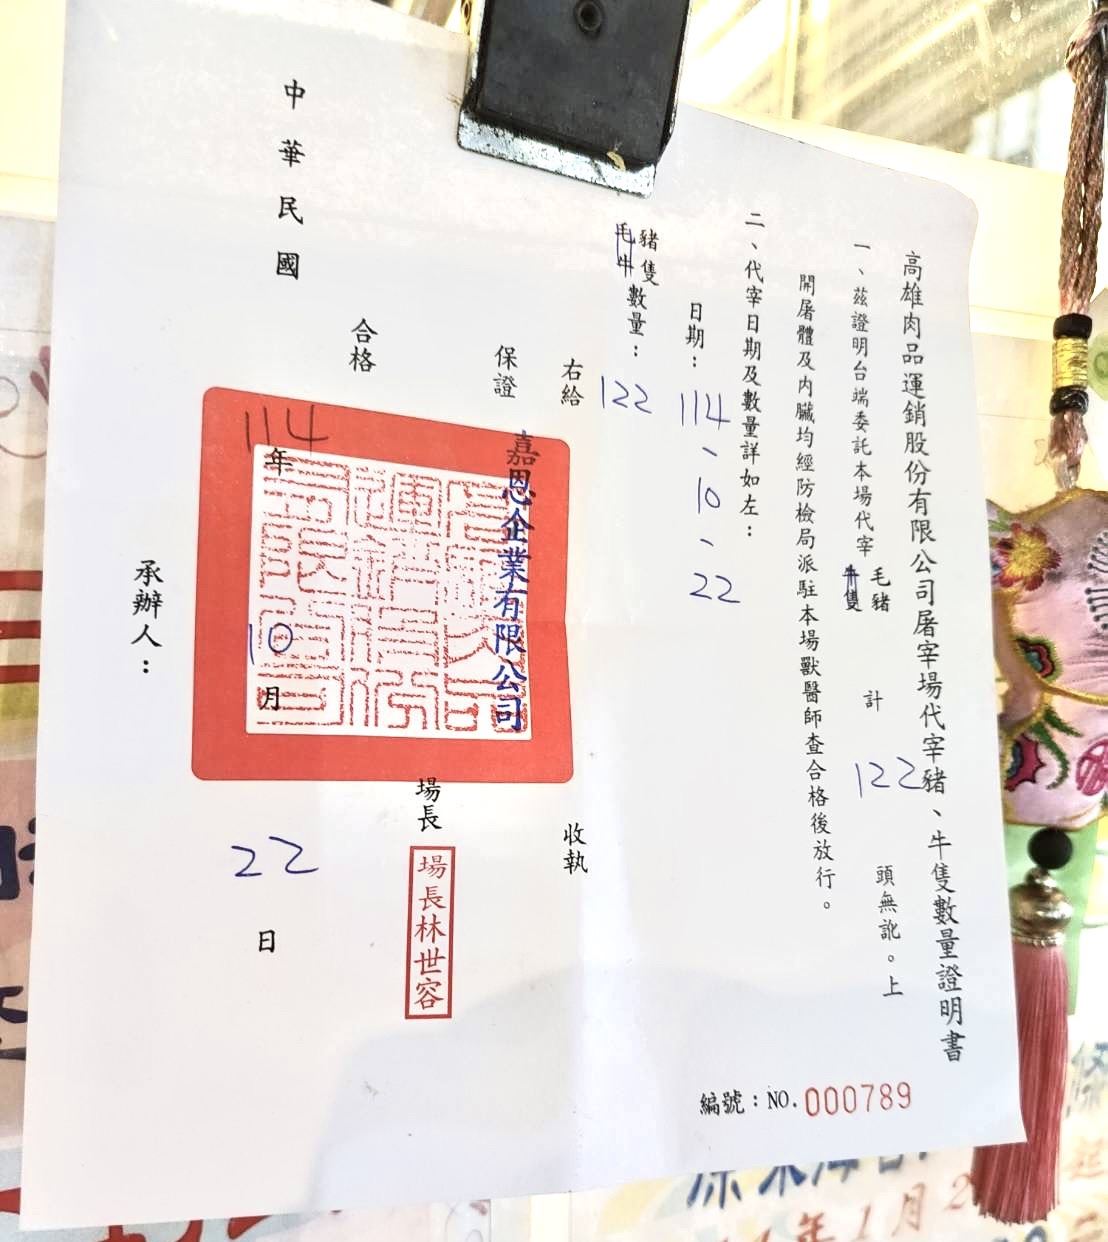 高雄肉品運銷股份有限公司屠宰場代宰豬、牛隻數量證明書
一、茲證明台端委託本場代宰毛豬牛隻 計 122 頭無訛。上
開屠體及內臟均經防檢局派駐本場獸醫師查合格後放行。
二、代宰日期及數量詳如左：
日期：114、10、22
豬隻
毛牛
數量：122
右給
嘉恩企業有限公司
收執
保證
合格
場長
場長林世容
中華民國
114年10月22日
承辦人：
編號：NO.000789
年1月2